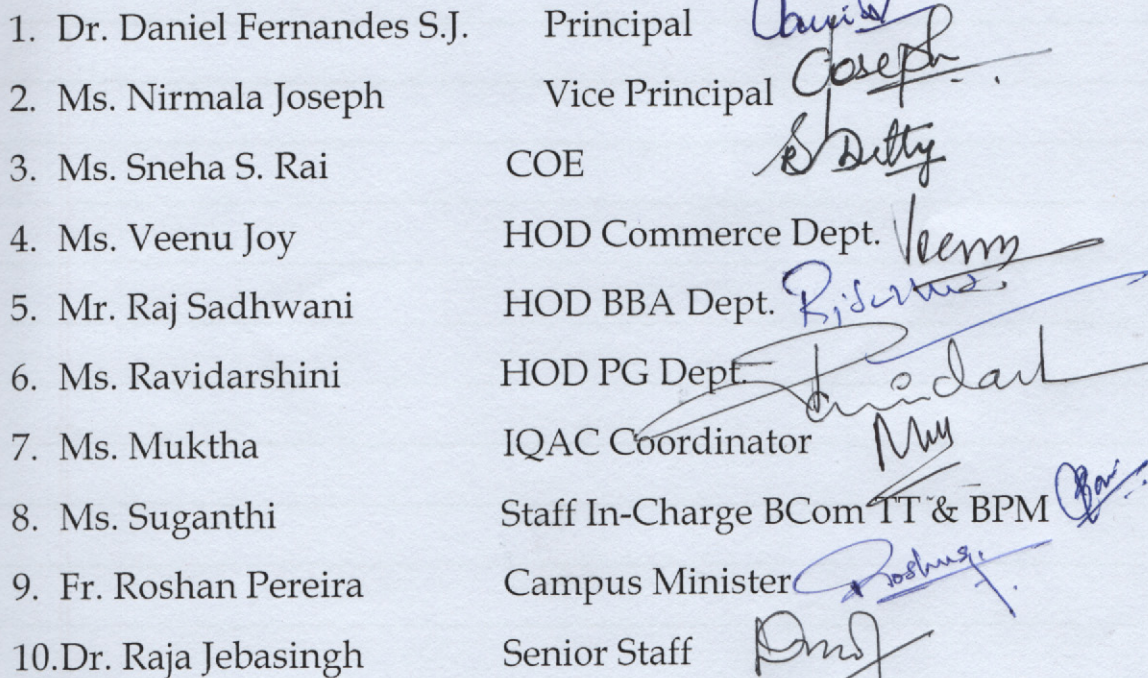 1. Dr. Daniel Fernandes S.J. Principal
2. Ms. Nirmala Joseph Vice Principal Joseph
3. Ms. Sneha S. Rai COE
4. Ms. Veenu Joy HOD Commerce Dept. Veenu
5. Mr. Raj Sadhwani HOD BBA Dept.
6. Ms. Ravidarshini HOD PG Dept.
7. Ms. Muktha IQAC Coordinator
8. Ms. Suganthi Staff In-Charge BCom TT & BPM
9. Fr. Roshan Pereira Campus Minister
10.Dr. Raja Jebasingh Senior Staff